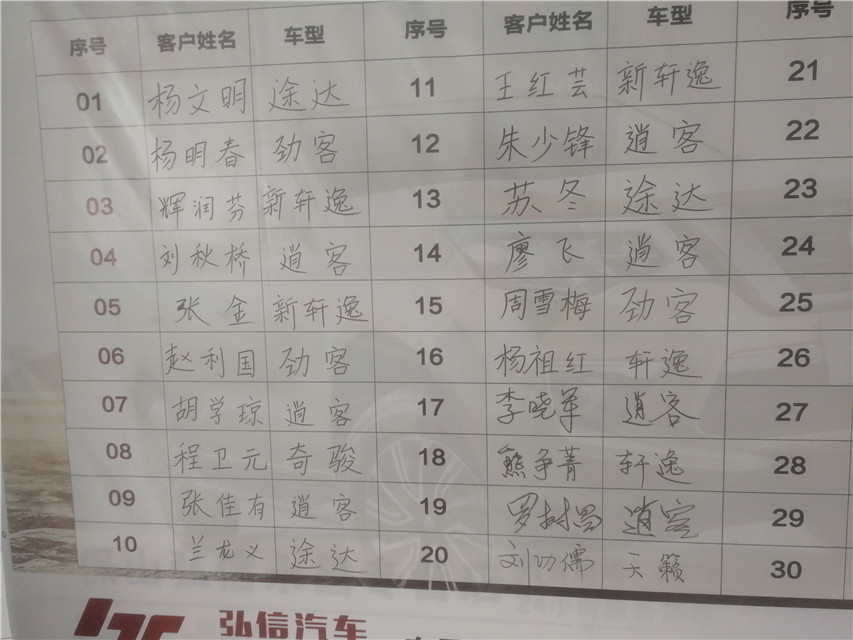 序号 客户姓名 车型 序号 客户姓名 车型 序号
01 杨文明 途达 11 王红芸 新轩逸 21
02 杨明春 劲客 12 朱少锋 逍客 22
03 辉润芬 新轩逸 13 苏冬 途达 23
04 刘秋桥 逍客 14 廖飞 逍客 24
05 张金 新轩逸 15 周雪梅 劲客 25
06 赵利国 劲客 16 杨祖红 轩逸 26
07 胡学琼 逍客 17 李晓军 逍客 27
08 程卫元 奇骏 18 熊争菁 轩逸 28
09 张佳有 逍客 19 罗树昌 逍客 29
10 兰龙义 途达 20 刘功儒 天籁 30
弘信汽车